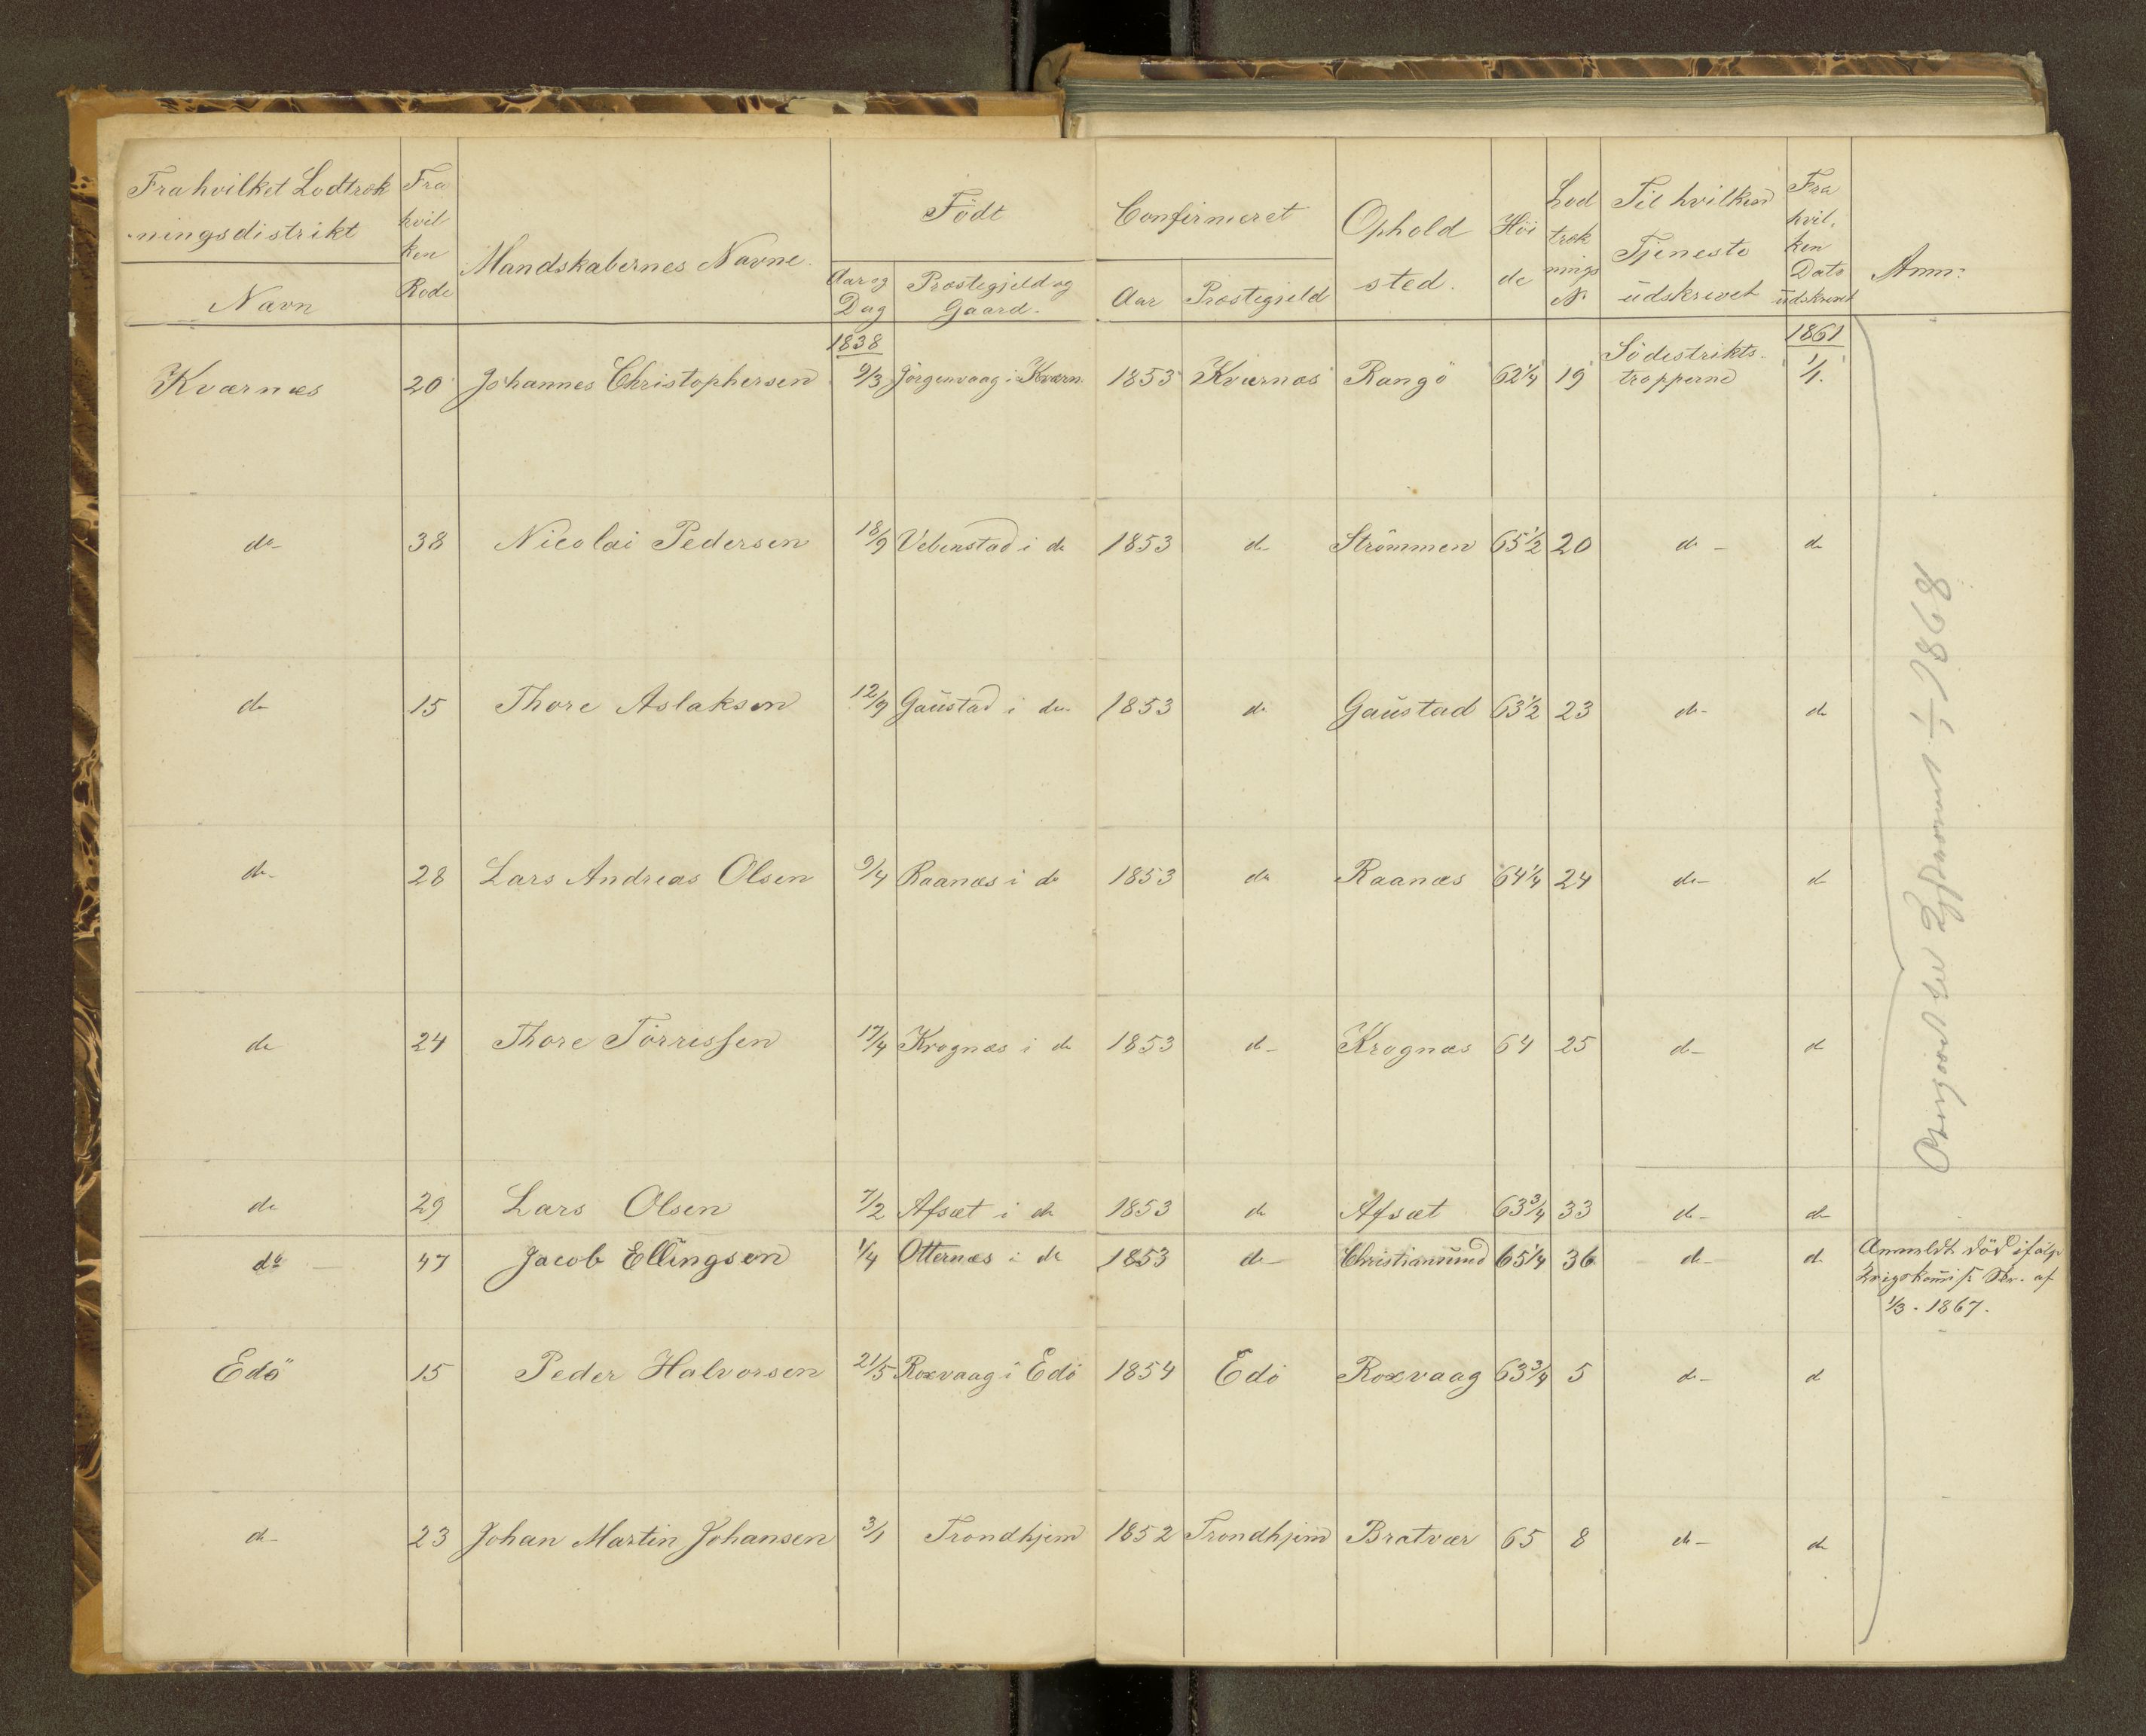 Fra hvilket Lodtræk
ningsdistrikt
Navn
Fra
hvil
ken
Rode
Mandskabernes Navne.
Födt
Aar og
Dag
Præstegjeld og
Gaard.
Confirmeret
Aar
Præstegjeld
Ophold
sted.
Höi
de
Lod
træk
nings
No
Til hvilken
Tjeneste
udskrevet
Fra
hvil-
ken
Dato
udskrevet
Anm:
1838
1861
Kværnæs 20 Johannes Christophersen 9/3 Jörgenvaag i Kværn. 1853 Kværnæs Rangö 62 1/4 19 Södestrikts-
tropperne 1/1.
do 38 Nicolai Pedersen 18/9 Vebenstad i do 1853 do Strömmen 65 1/2 20 do do
do 15 Thore Aslaksen 12/9 Gaustad i do 1853 do Gaustad 63 1/2 23 do do
do 28 Lars Andreas Olsen 9/4 Raanæs i do 1853 do Raanæs 64 1/4 24 do do
do 24 Thore Törrissen 17/4 Krognæs i do 1853 do Krognæs 64 25 do do
do 29 Lars Olsen 7/2 Afsæt i do 1853 do Afsæt 63 3/4 33 do do
do 47 Jacob Ellingsen 1/4 Otternæs i do 1853 do Christiansund 65 1/4 36 do do Anmeldt död ifölge
Krigskommiss. Skr. af
1/3. 1867.
Edö 15 Peder Halvorsen 21/5 Roxvaag i Edö 1854 Edö Roxvaag 63 3/4 5 do do
do 23 Johan Martin Johansen 3/1 Trondhjem 1852 Trondhjem Bratvær 65 8 do do
Overgaaet til 1/1 1868